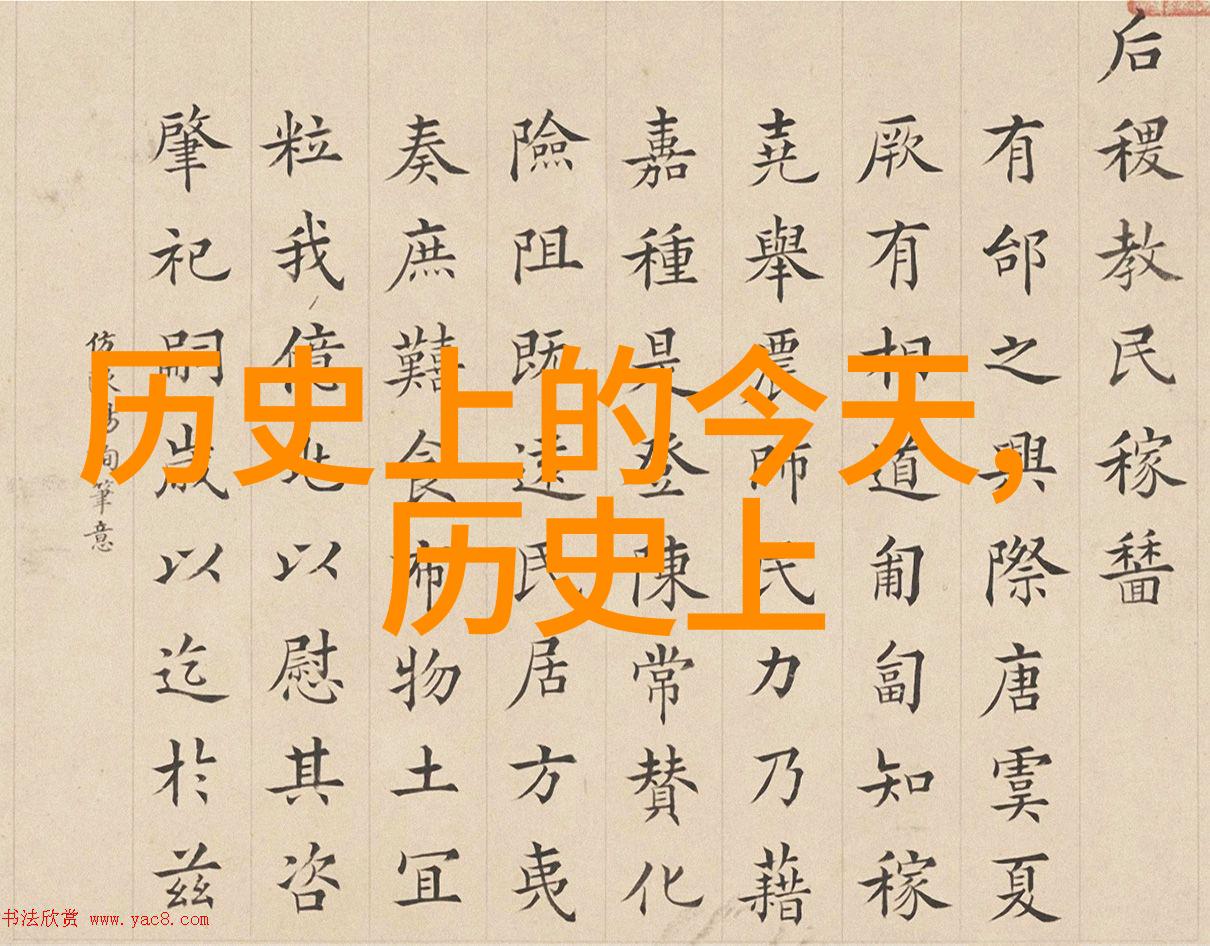 历史上的今天,
历史上
后稷教民稼穡
有邰之興際唐虞夏
厥有相道匍匐知稼
堯舉農師民力乃藉
嘉種是登陳常賛化
險阻既遠民居方夷
奏庶囏食布物土宜
粒我億兆以慰其咨
肇祀嗣歲以迄於茲
仿歐陽詢筆意
书法欣赏 www.yac8.com